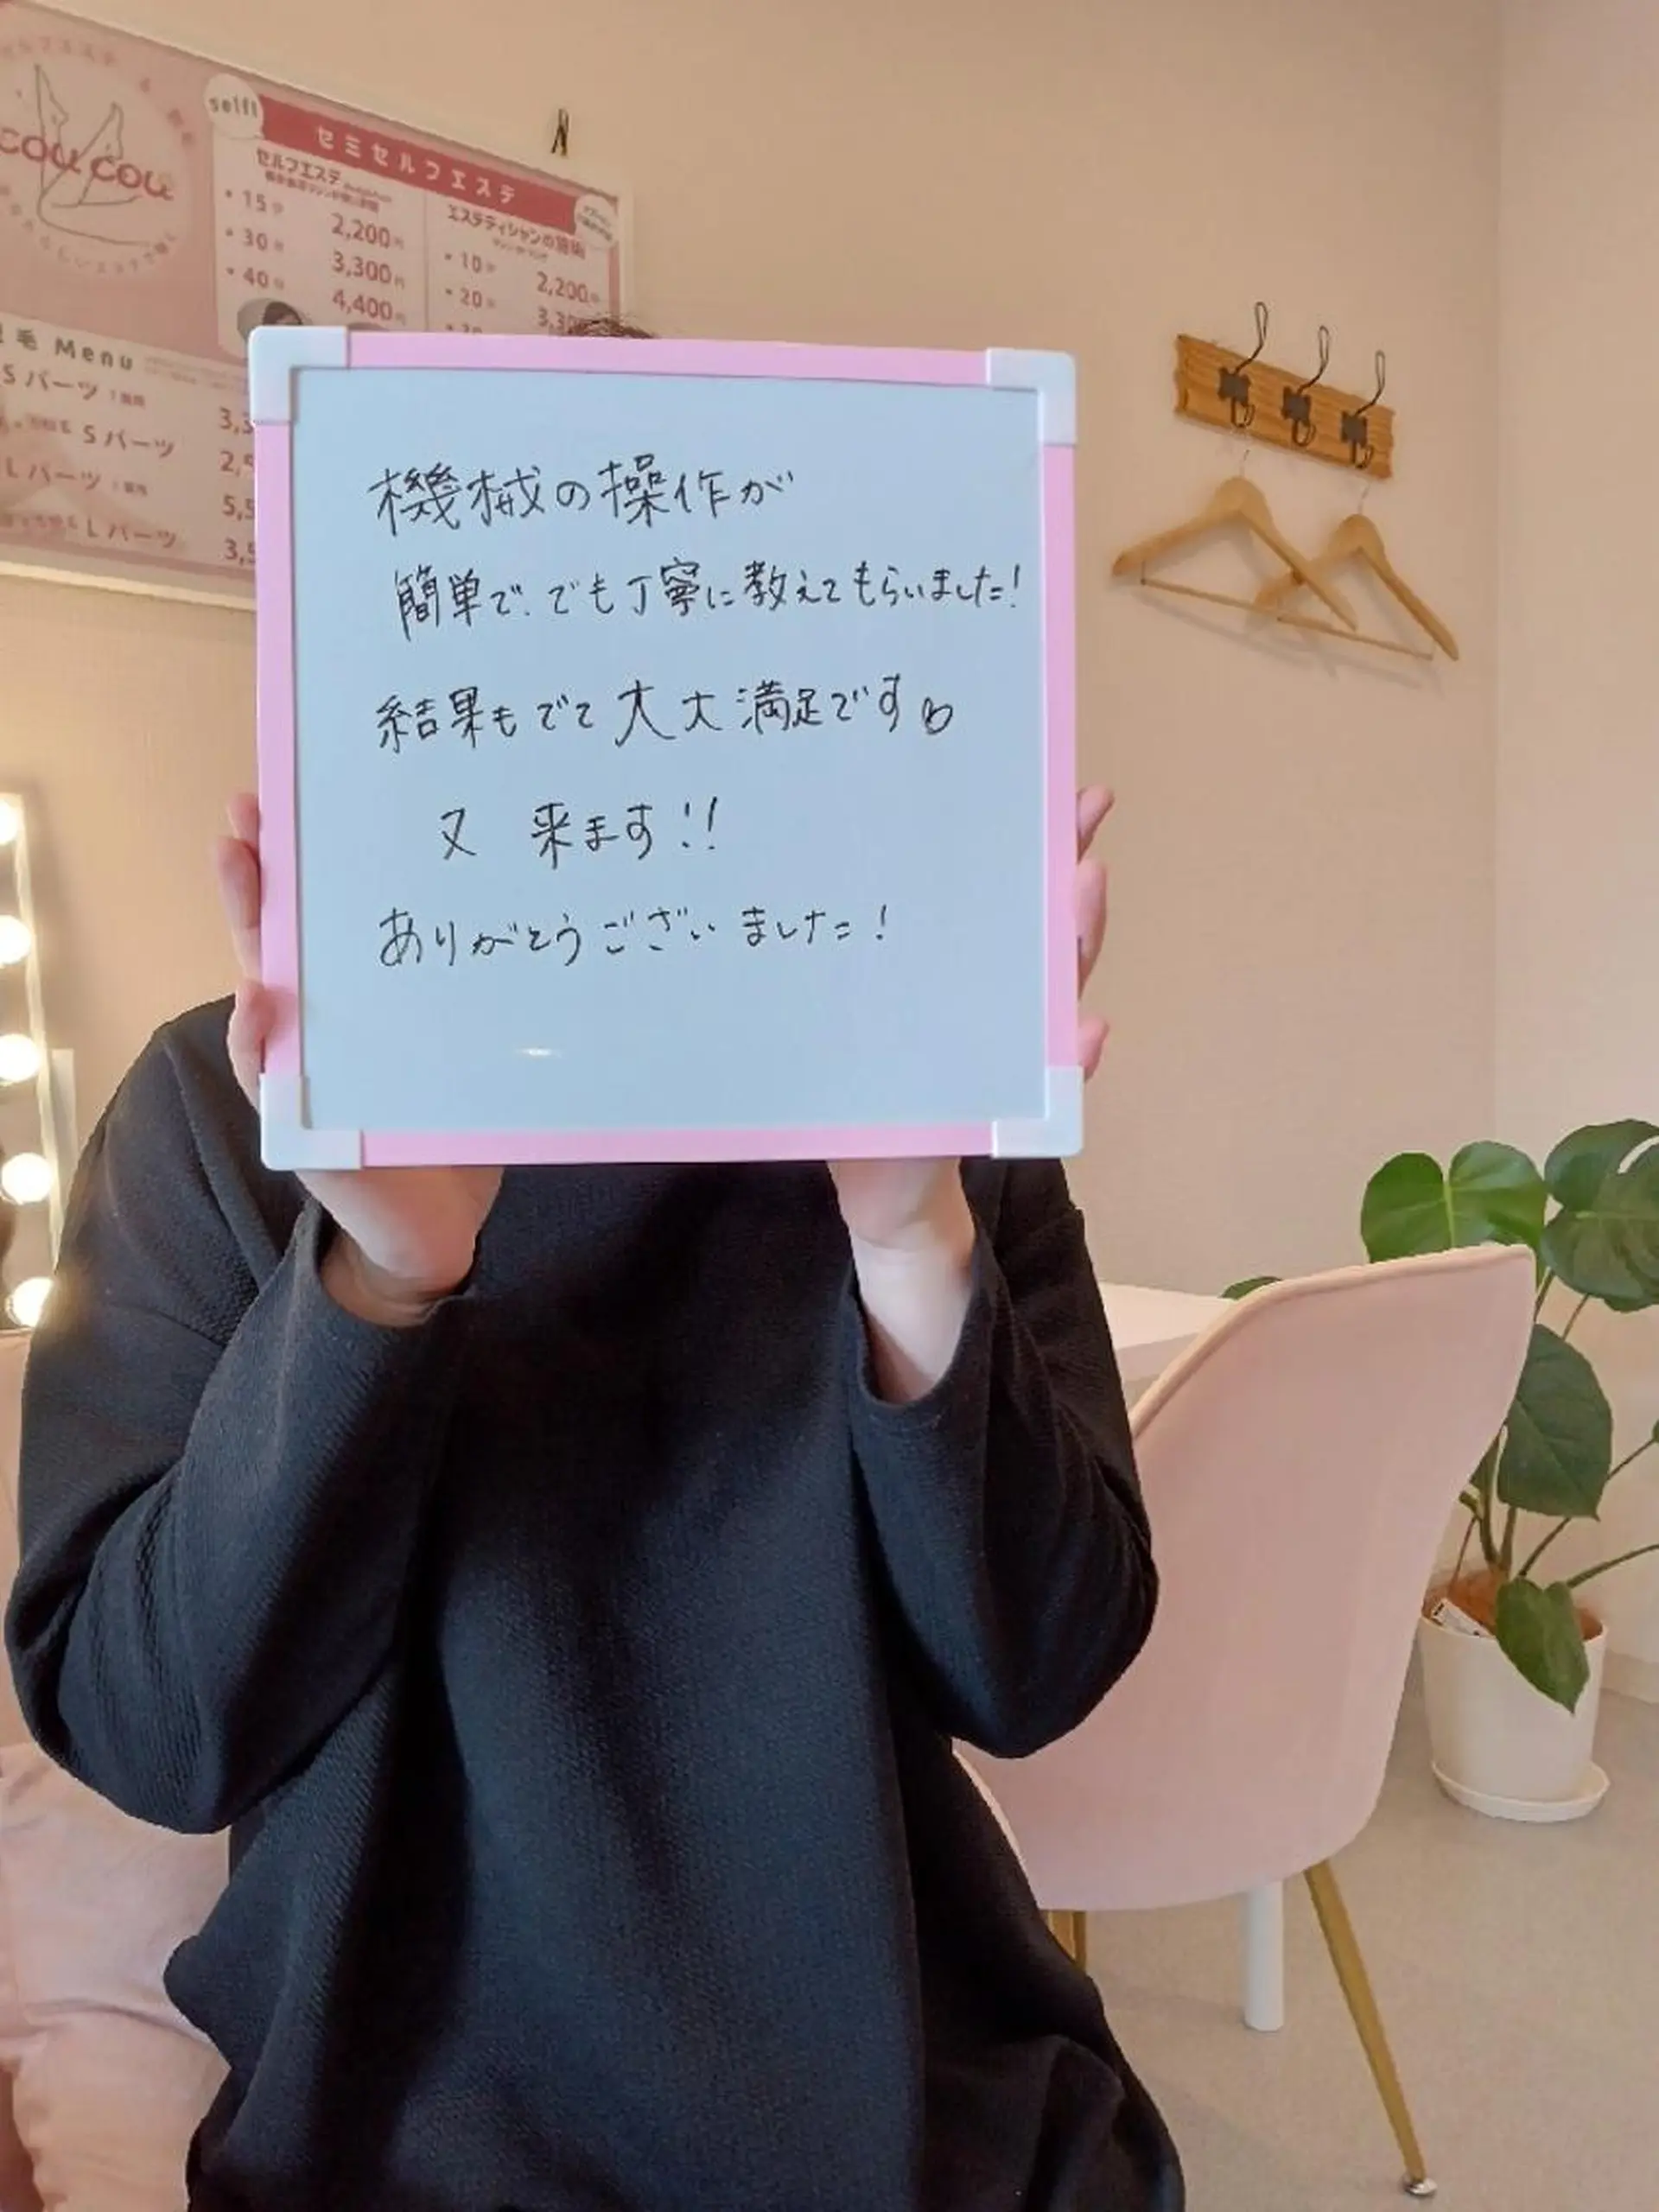 COU COU
self!
セミセルフエステ
セルフエステ
・15分 2,200円
・30分 3,300円
・40分 4,400円
エステティシャンの施術
・10分 2,200
・20分
毛 Menu
Sパーツ
Sパーツ
Lパーツ
Lパーツ
機械の操作が
簡単で、でも丁寧に教えてもらいました!
結果もでて大大満足です♡
又 来ます!!
ありがとうございました!